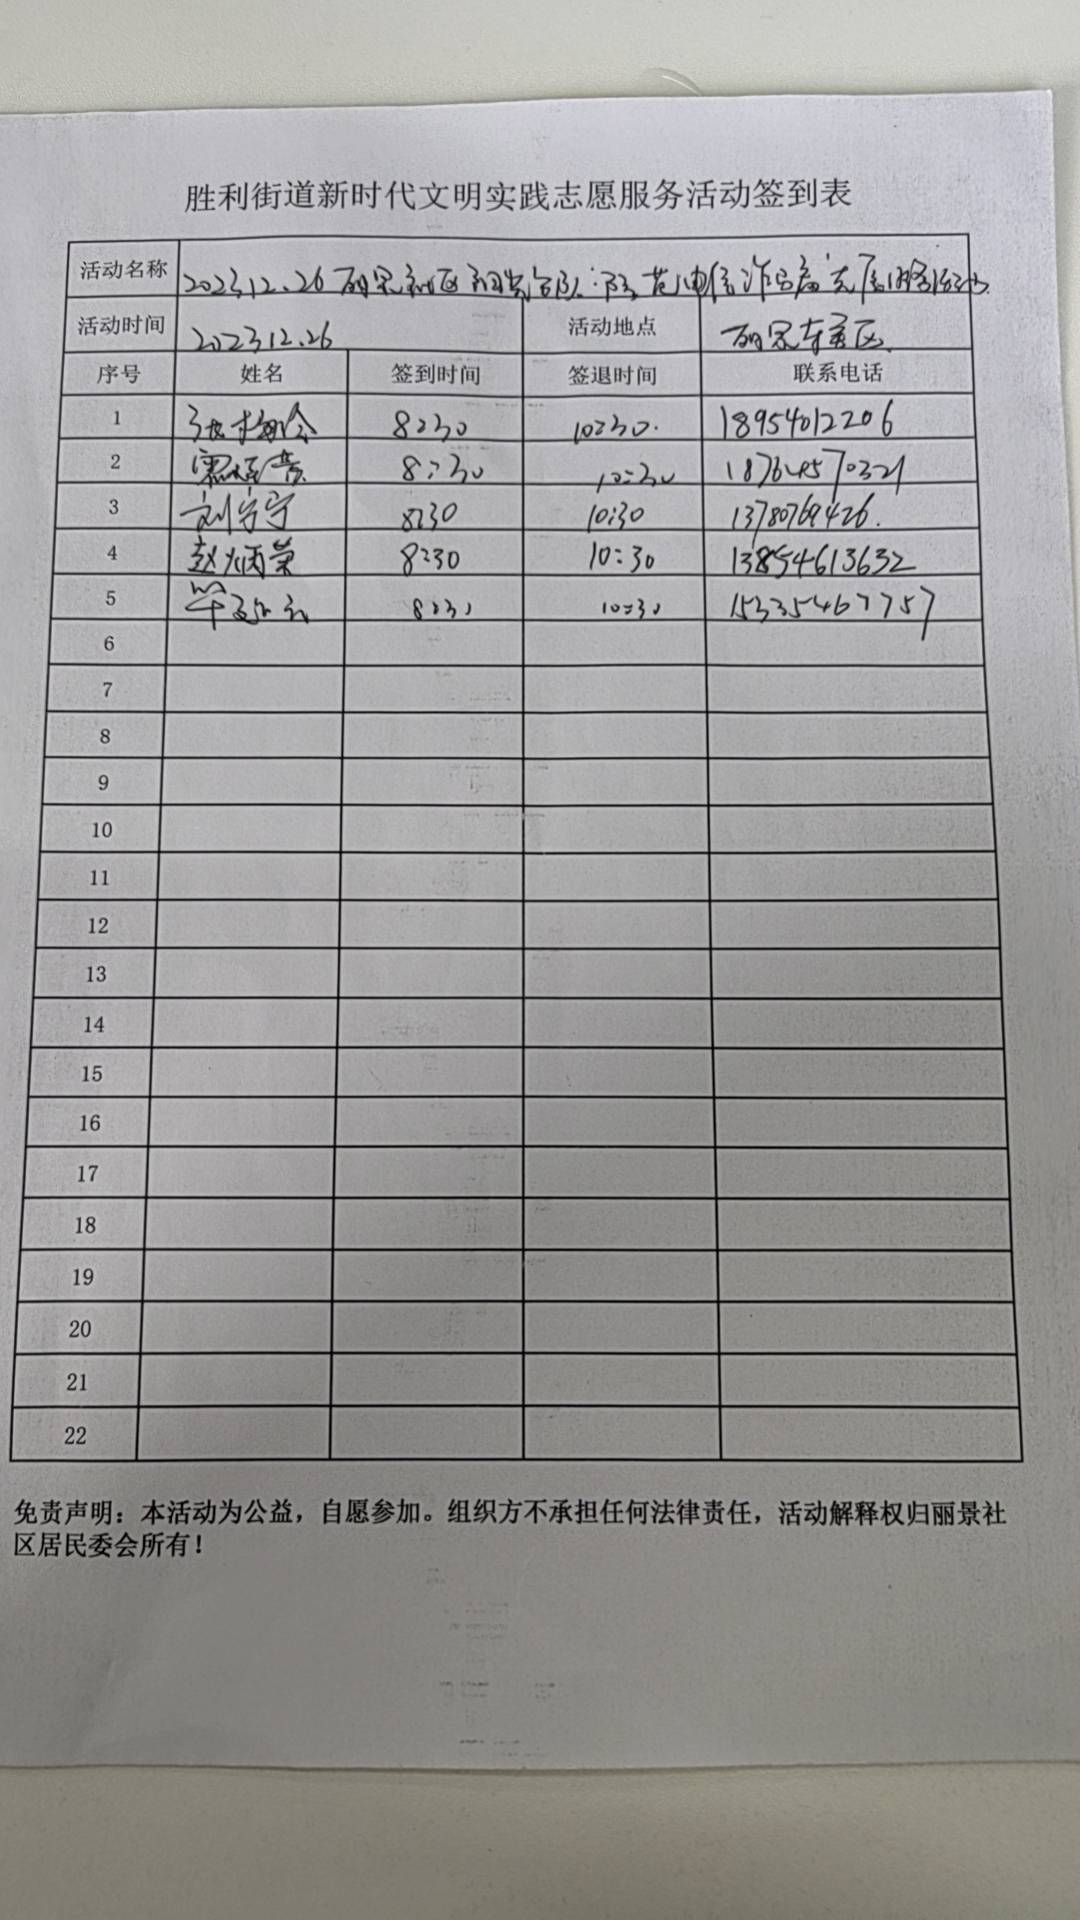 胜利街道新时代文明实践志愿服务活动签到表
活动名称 2023.12.26 丽景社区 防范电信诈骗 志愿服务活动
活动时间 2023.12.26 活动地点 丽景东美区
序号 姓名 签到时间 签退时间 联系电话
1 8:30 10:30. 18954012206
2 8:30 10:30 18764570321
3 刘宁宁 8:30 10:30 13780769426.
4 赵炳荣 8:30 10:30 13854613632
5 8:30 10:30 15335467757
6
7
8
9
10
11
12
13
14
15
16
17
18
19
20
21
22
免责声明：本活动为公益，自愿参加。组织方不承担任何法律责任，活动解释权归丽景社
区居民委会所有！